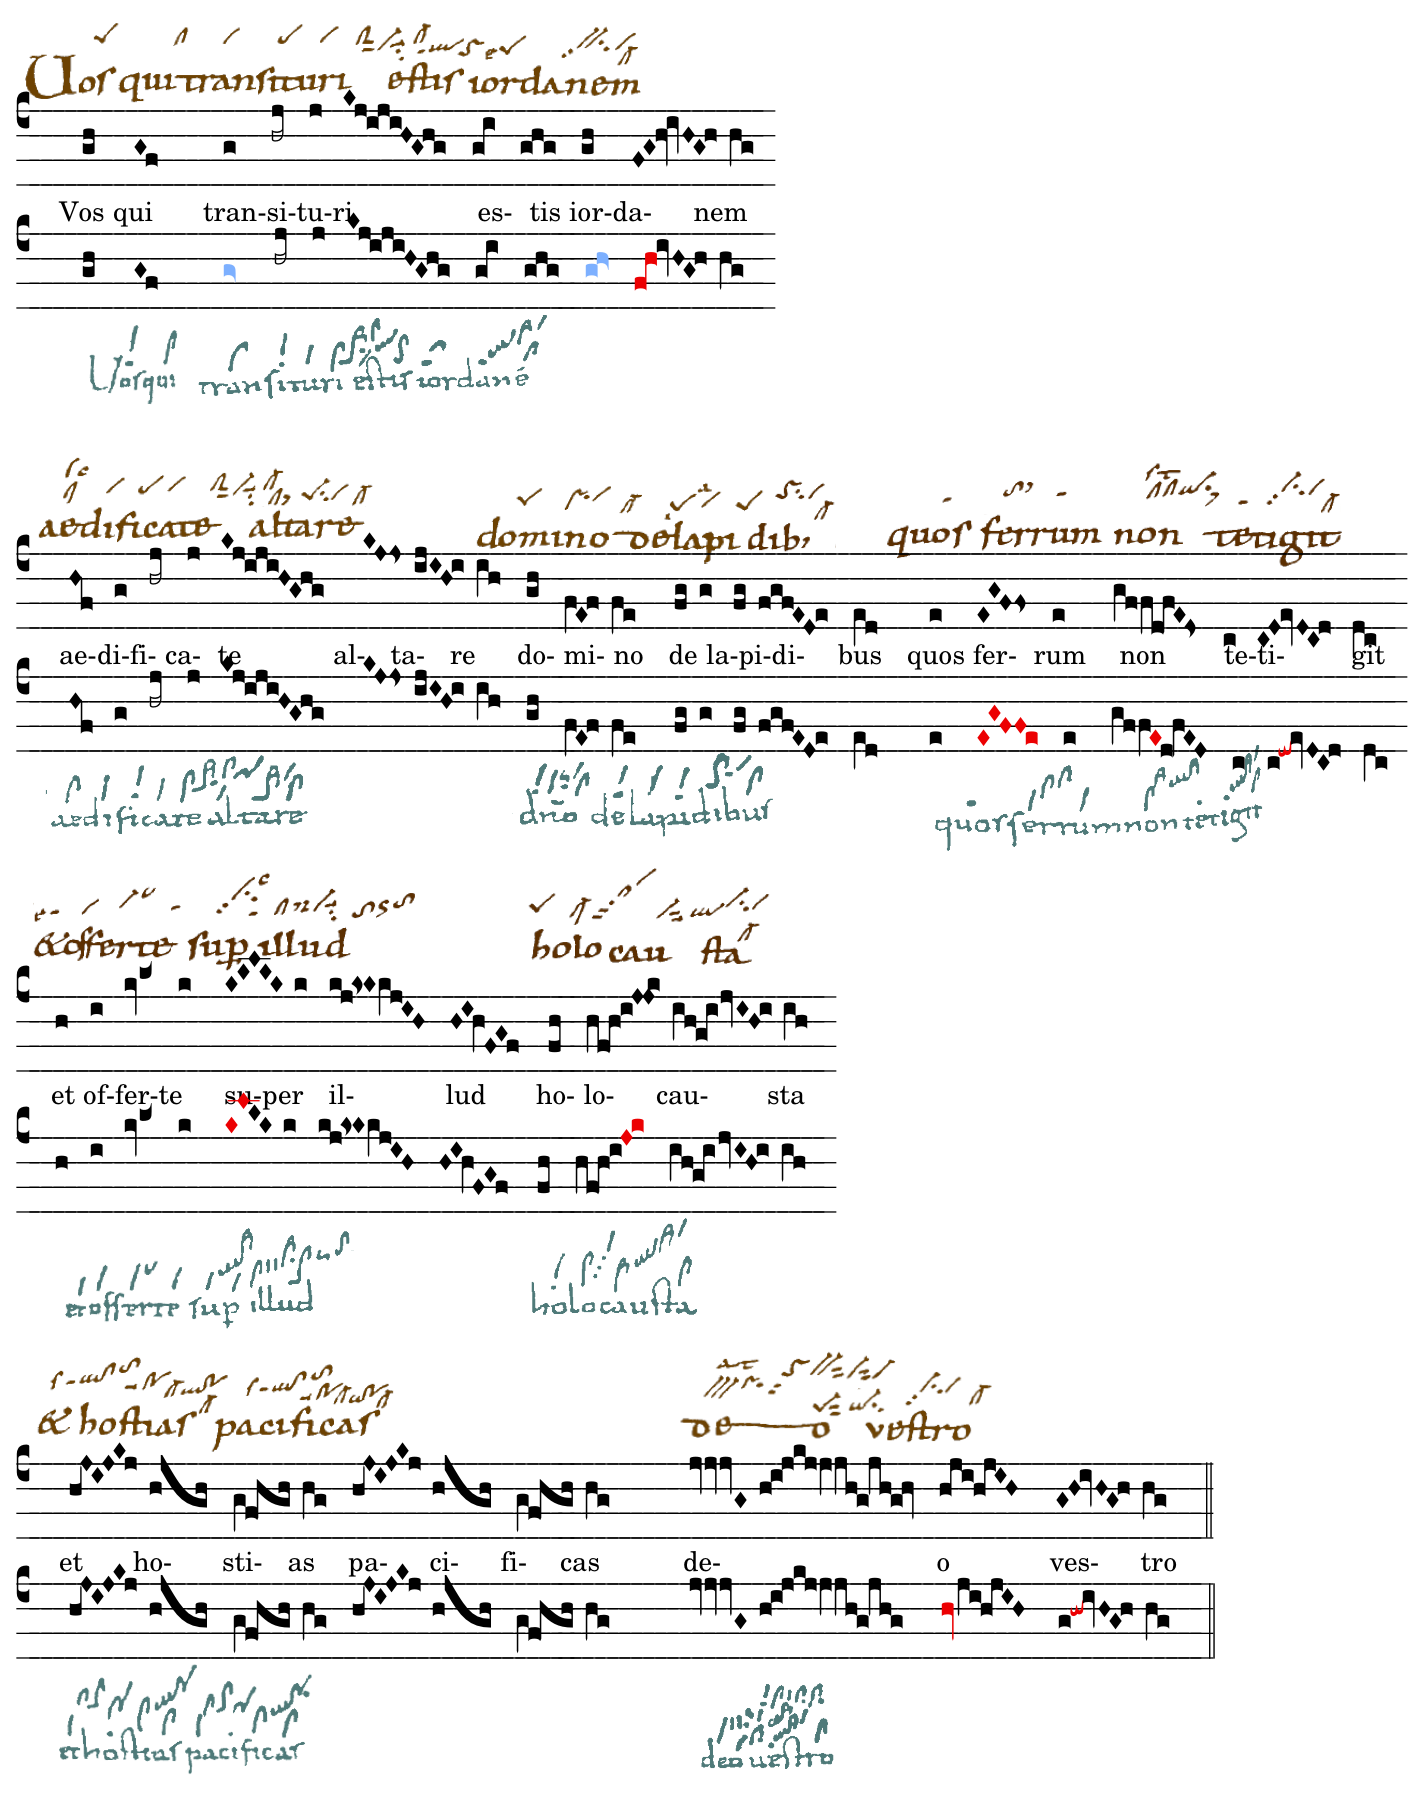 Vos qui transituri estis iordanem
Vos qui tran-si-tu-ri es-tis ior-da-nem
Uosqui transituri estis iordané
aedificate altare domino delapidib, quos ferrum non tetigit
ae-di-fi-ca-te al-ta-re do-mi-no de la-pi-di-bus quos fer-rum non te-ti-git
aedificate altare dn̄o delapidibus quosferrumnontetigit
&offerte sup illud holocausta
et of-fer-te su-per il-lud ho-lo-cau-sta
etofferte sup illud holocausta
& hostias pacificas deo vestro
et ho-sti-as pa-ci-fi-cas de-o ves-tro
ethostias pacificas deo uestro